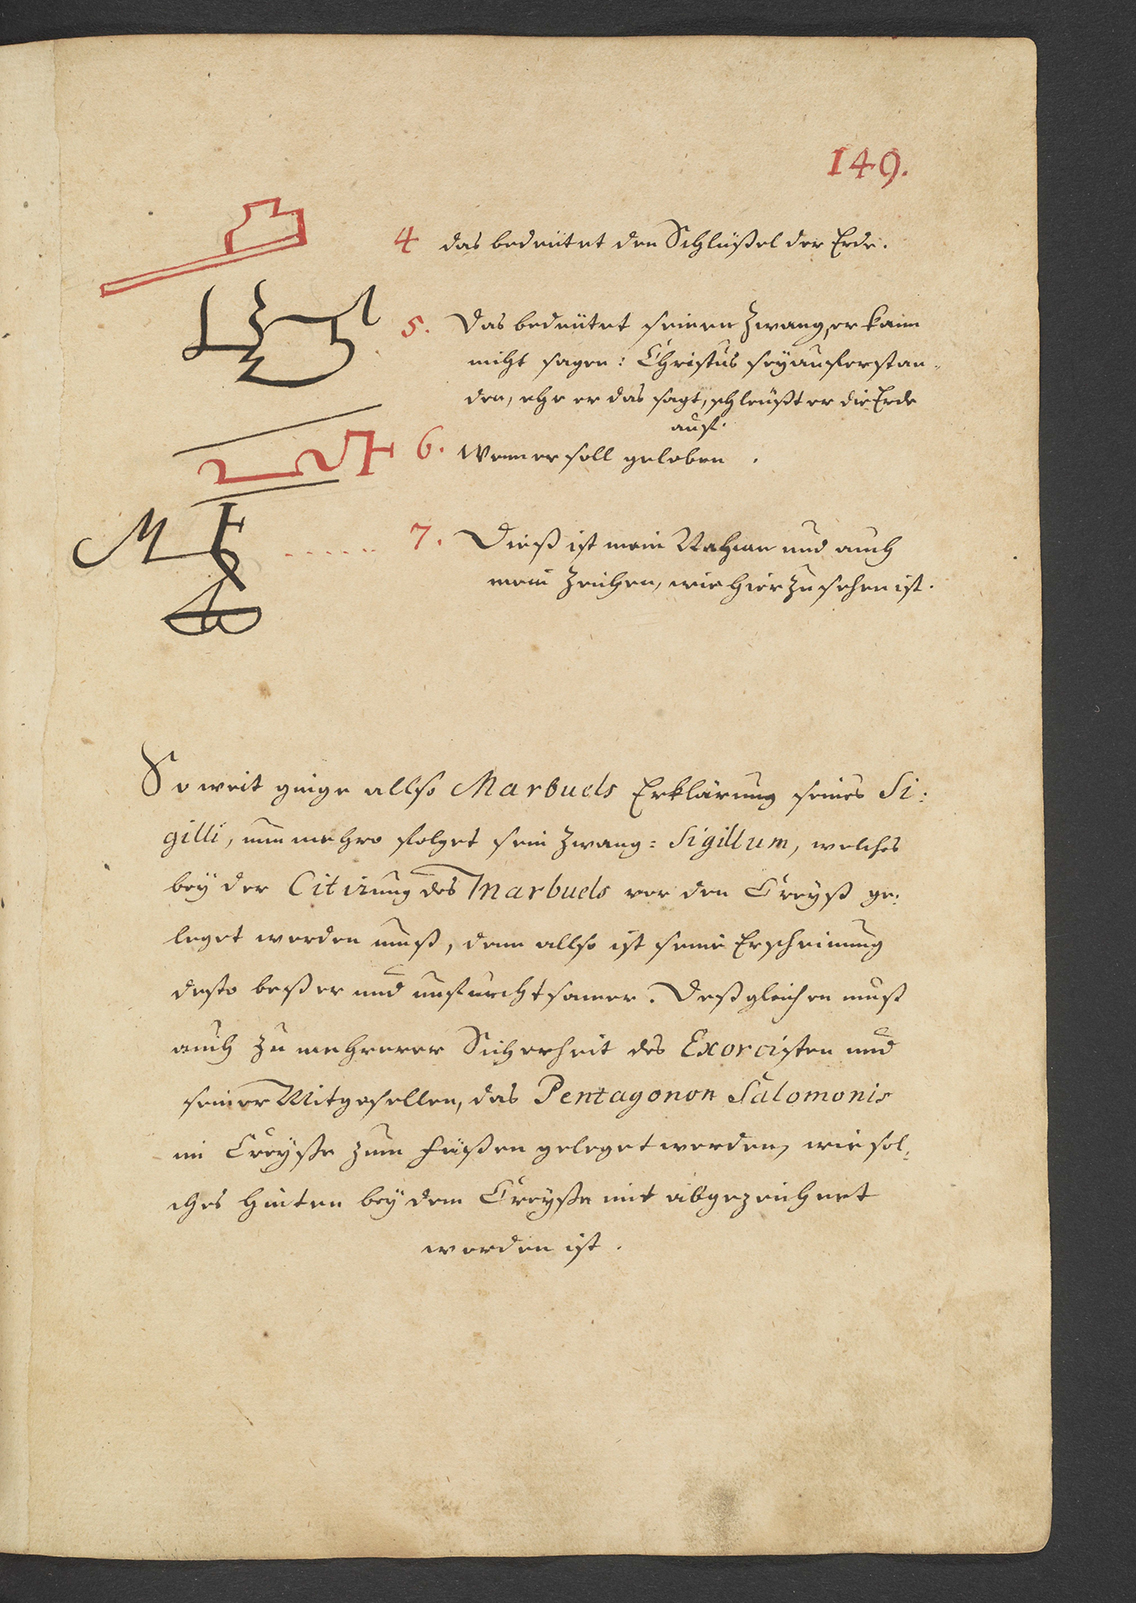 149.
4 das bedeütet den Schlüßel der Erde.
5. Das bedeütet seinen Zwang, er kann
nicht sagen: Christus seÿ auferstan-
den, ehe er das sagt, schleüßt er die Erde
auf.
6. Wenn er soll geloben.
7. Dieß ist mein Nahme und auch
mein Zeichen, wie hier zu sehen ist.
So weit ginge allso Marbuels Erklärung seines Si:
gilli, nun mehro folget sein Zwang: Sigillum, welches
beÿ der Citirung des Marbuels vor den Creÿß ge:
leget werden muß, denn allso ist seine Erscheinung
desto beßer und unfurchtsamer. Deßgleichen muß
auch zu mehrerer Sicherheit des Exorcisten und
seiner Mitgesellen, das Pentagonon Salomonis
im Creÿße zum Füßen geleget werden, wie sol:
ches hinten beÿ dem Creÿße mit abgezeichnet
worden ist.